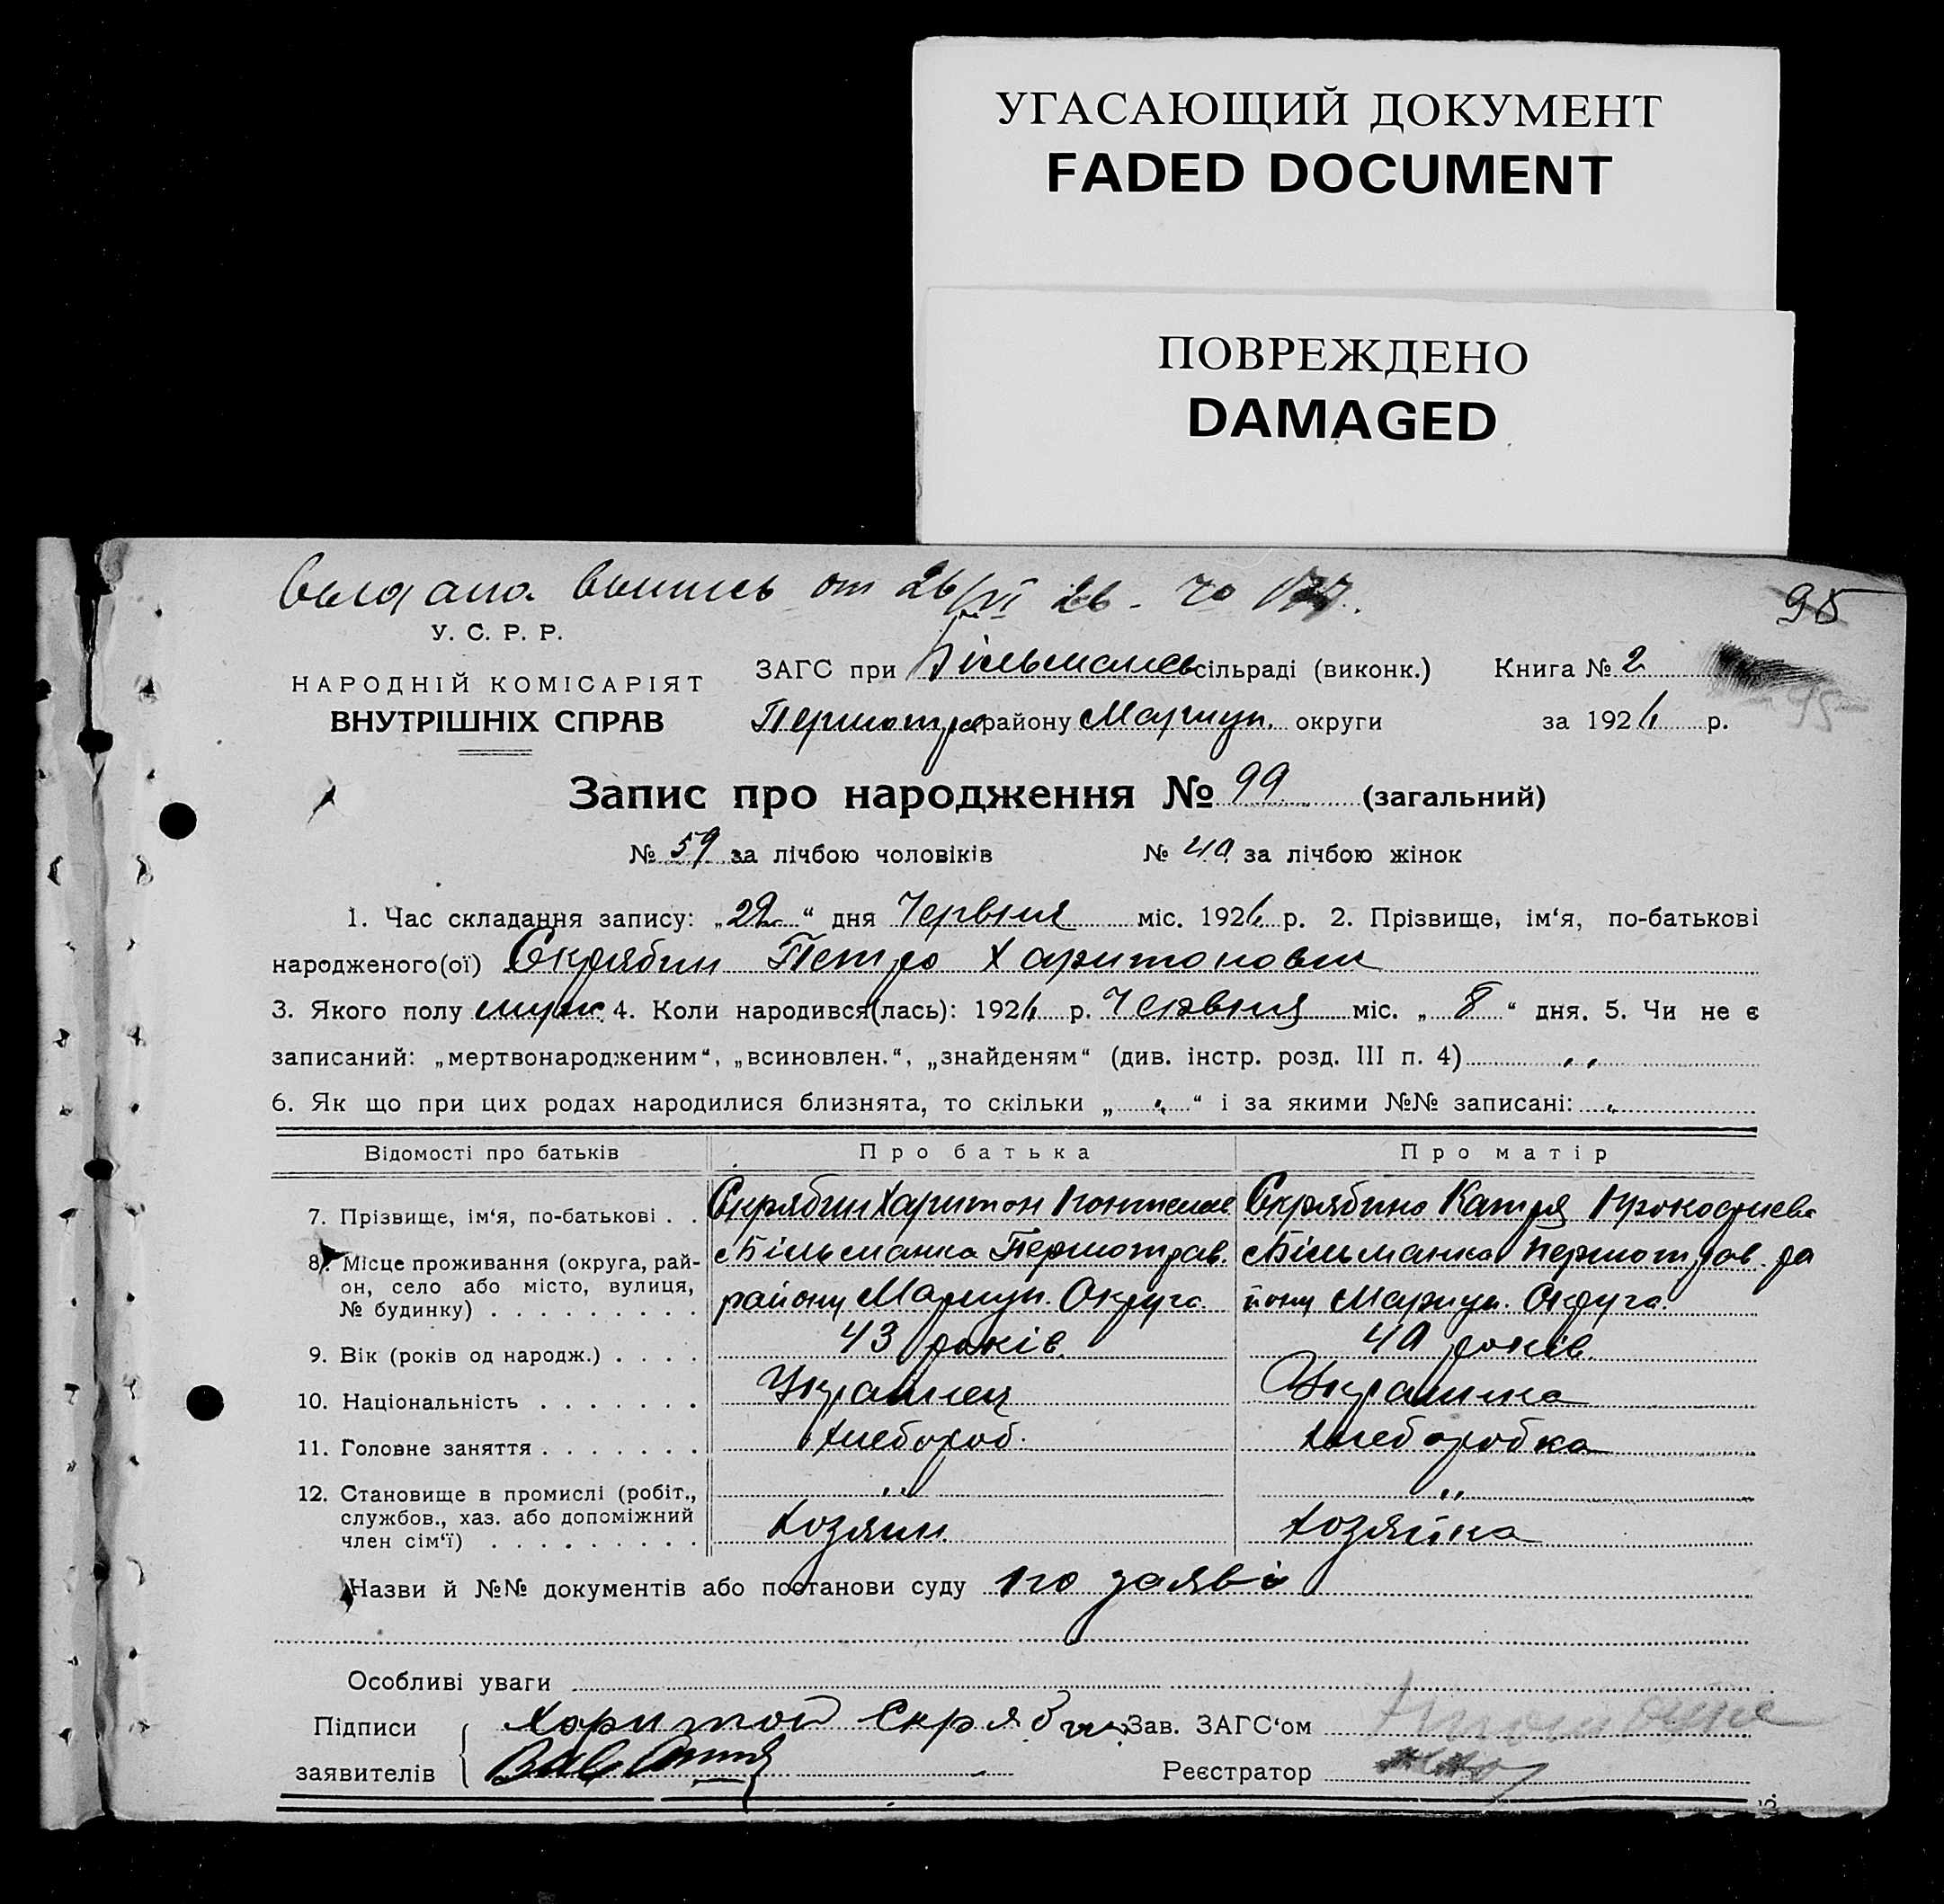 УГАСАЮЩИЙ ДОКУМЕНТ
FADED DOCUMENT
ПОВРЕЖДЕНО
DAMAGED
Выдана выпись от 26/VI 26
95
У. С. Р. Р.
НАРОДНІЙ КОМІСАРІЯТ
ВНУТРІШНІХ СПРАВ
ЗАГС при Більманськ сільраді (виконк.) Книга № 2
Першотра району Маріуп. округи за 1926 р.
Запис про народження № 99 (загальний)
№ 59 за лічбою чоловіків № 40 за лічбою жінок
1. Час складання запису: „22“ дня Червня міс. 1926 р. 2. Прізвище, ім‘я, по-батькові
народженого(ої) Скрябин Петро Харитонович
3. Якого полу муж. 4. Коли народився(лась): 1926 р. Червня міс. „8“ дня. 5. Чи не є
записаний: „мертвонародженим“, „всиновлен.“, „знайденям“ (див. інстр. розд. III п. 4) „
6. Як що при цих родах народилися близнята, то скільки „ „ “ і за якими №№ записані: „
Відомості про батьків Про батька Про матір
7. Прізвище, ім‘я, по-батькові . . Скрябин Харитон Скрябина Катря
8. Місце проживання (округа, рай-
он, село або місто, вулиця,
№ будинку) . . . . . . . . .
с Більманка Першотрав.
району Маріуп. Округа
с Більманка Першотрав. ра
йону Маріуп. Округа.
9. Вік (років од народж.) . . . . 43 років. 40 років.
10. Національність . . . . . . . Украинец Украинка
11. Головне заняття . . . . . . . хлебороб. хлеборобка
12. Становище в промислі (робіт.,
службов., хаз. або допоміжний
член сім‘ї) . . . . . . . . .
„
хозяин.
„
хозяйка
Назви й №№ документів або постанови суду по заяві
Особливі уваги
Підписи Харитон Скрябин Зав. ЗАГС‘ом
заявителів Реєстратор